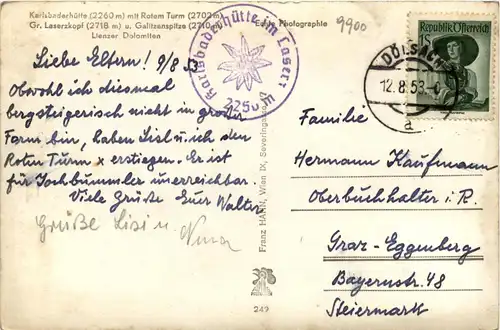 Karlsbaderhütte (2260 m) mit Rotem Turm (2702 m)
Gr. Laserzkopf (2718 m) u. Galitzenspitze (2710 m)
Lienzer Dolomiten
Echte Photographie
9900
Karlsbaderhütte im Laserz
2250 m
Republik Österreich
1S
DÖLSACH
12.8.53
a
Liebe Eltern! 9/8 53
Obwohl ich diesmal
bergsteigerisch nicht in großer
Form bin, haben Lisl u. ich den
Roten Turm x erstiegen. Er ist
für Jochbummler unerreichbar.
Viele Grüße Euer Walter
Grüße Lisi u.
Franz HAHN, Wien IX, Severingasse
249
Familie
Hermann Kaufmann
Oberbuchhalter i. R.
Graz-Eggenberg
Bayernstr. 48
Steiermark